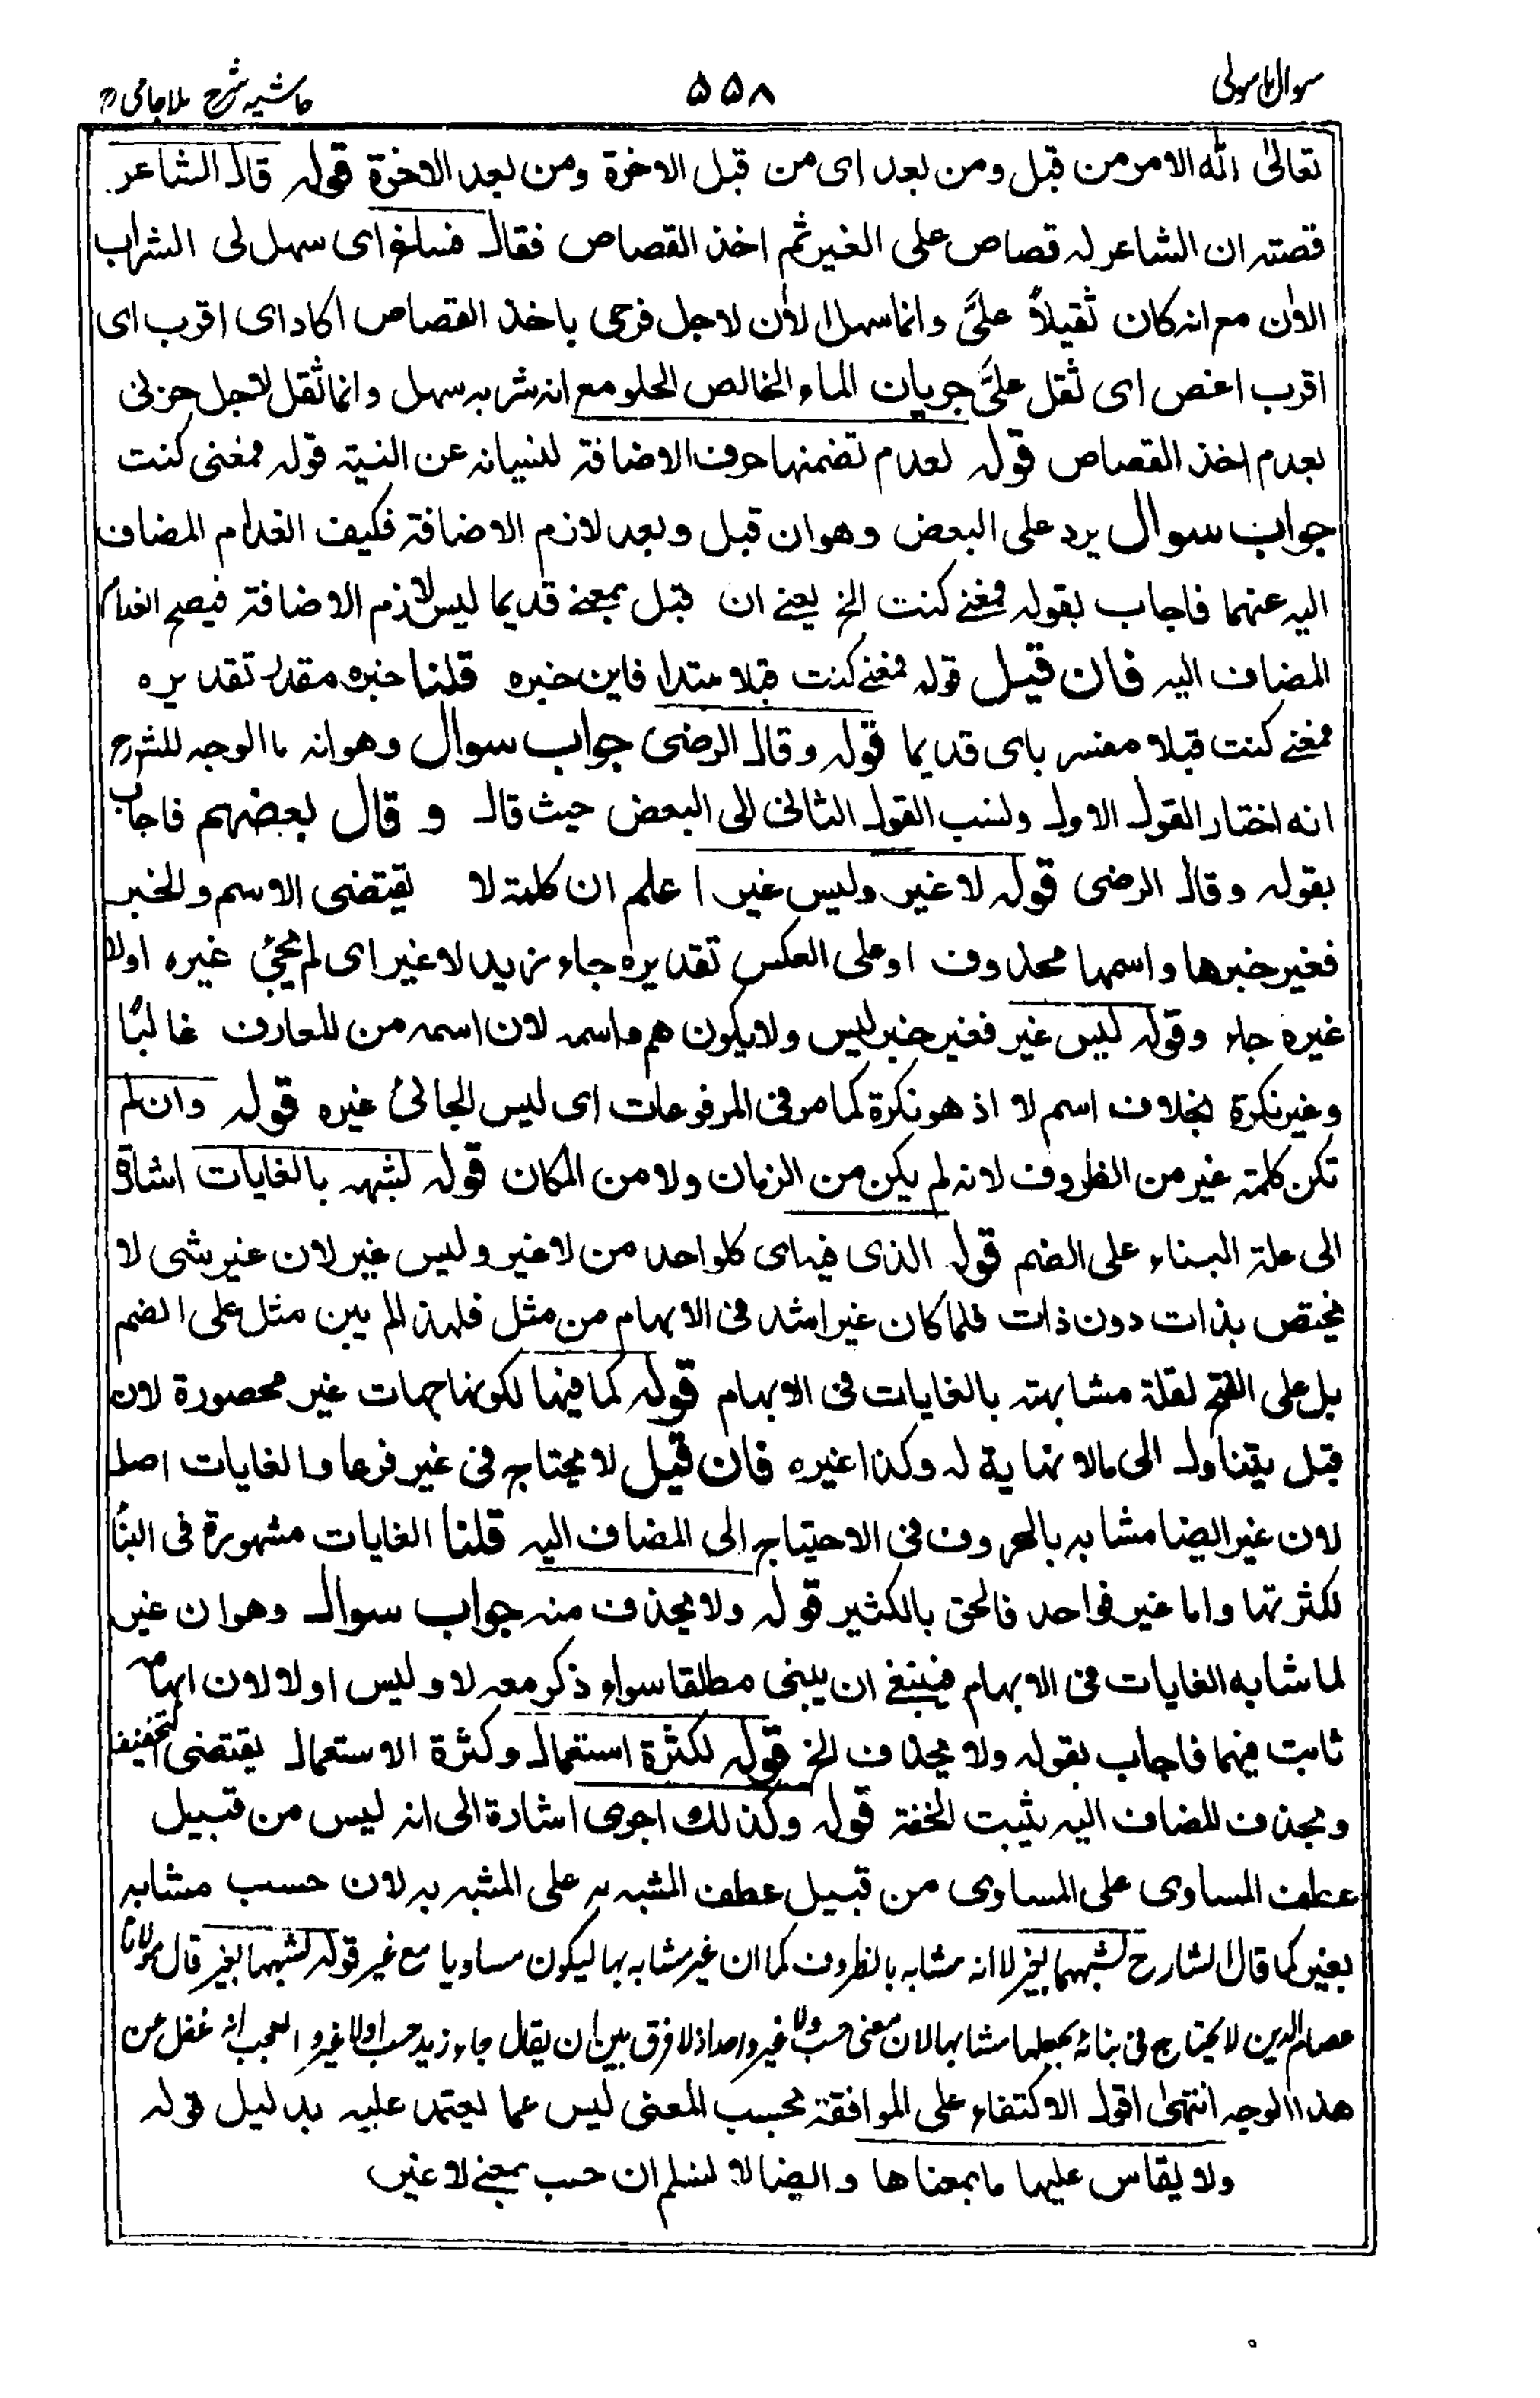 سوال باسولی ۵۵۸ حاشیہ شرح ملا جامی
تعالیٰ للہ الامر من قبل ومن بعد ای من قبل الاخرة ومن بعد الاخرة قولہ قال الشاعر
قصتہ ان الشاعر لہ قصاص علی الغیر ثم اخذ القصاص فقال فساغ ای سهل لی الشراب
الاٰن مع انہ کان ثقیلاً علیَّ وانما سهل الاٰن لاجل فرحی باخذ القصاص اکاد ای اقرب ای
اقرب اغص ای ثقل علیَّ جریان الماء الخالص الحلو مع انہ شربہ سهل وانما ثقل لاجل حزنی
بعدم اخذ القصاص قولہ لعدم تضمنها حرف الاضافة لنسیانہ عن النیة قولہ فمعنی کنت
جواب سوال یرد علی البعض وهو ان قبل وبعد لازم الاضافة فکیف انعدام المضاف
الیہ عنهما فاجاب بقولہ فمعنے کنت الخ یعنے ان قبل بمعنے قدیما لیس لازم الاضافة فیصح انعدام
المضاف الیہ فان قیل قولہ فمعنے کنت قبلا مبتدا فاین خبره قلنا خبره مقدر تقدیره
فمعنے کنت قبلا مفسر بای قدیما قولہ وقال الرضی جواب سوال وهو انہ ما الوجہ للشرح
انه اختار القول الاول ونسب القول الثانی الی البعض حیث قال وقال بعضهم فاجاب
بقولہ وقال الرضی قولہ لا غیر ولیس غیر اعلم ان کلمة لا یقتضی الاسم والخبر
فغیر خبرها واسمها محذوف او علی العکس تقدیره جاء زید لا غیر ای لم یجئ غیره اولا
غیره جاء وقولہ لیس غیر فغیر خبر لیس ولا یکون هم ما اسمہ لان اسمہ من المعارف غالبًا
وغیر نکرة بخلاف اسم لا اذ هو نکرة کما مر فی المرفوعات ای لیس الجائی غیره قولہ وان لم
تکن کلمة غیر من الظروف لانہ لم یکن من الزمان ولا من المکان قولہ لشبهہ بالغایات اشارة
الی علة البناء علی الضم قولہ الذی فیہ ای کل واحد من لا غیر ولیس غیر لان غیر شی لا
یختص بذات دون ذات فلما کان غیر اشد فی الابهام من مثل فلهذا لم یبن مثل علی الضم
بل علی الفتح لقلة مشابهتہ بالغایات فی الابهام قولہ کما فیها لکونها جهات غیر محصورة لان
قبل یتناول الی مالا نهایة لہ وکذا غیره فان قیل لا یحتاج فی غیر فرعا والغایات اصل
لان غیر ایضا مشابہ بالحروف فی الاحتیاج الی المضاف الیہ قلنا الغایات مشهورة فی البناء
لکثرتها واما غیر فواحد فالحق بالکثیر قولہ ولا یحذف منہ جواب سوال وهو ان غیر
لما شابه الغایات فی الابهام فینبغے ان یبنی مطلقا سواء ذکر معہ لا ولیس اولا لان ابهامہ
ثابت فیهما فاجاب بقولہ ولا یحذف الخ قولہ لکثرة استعمال وکثرة الاستعمال یقتضی التخفیف
وبحذف المضاف الیہ یثبت الخفة قولہ وکذلك اجری اشارة الی انہ لیس من قبیل
عطف المساوی علی المساوی من قبیل عطف المشبہ بہ علی المشبہ بہ لان حسب مشابہ
بغیر کما قال الشارح لشبهها بغیر لا انہ مشابہ بالظروف کما ان غیر مشابہ بها لیکون مساویا مع غیر قولہ لشبهها بغیر قال مولانا
عصام الدین لا یحتاج فی بنائہ بجعلها مشابها لان معنی حسب ولا غیر واحد اذ لا فرق بین ان یقال جاء زید حسب او لا غیر والعجب انہ غفل عن
هذا الوجہ انتهی اقول الاکتفاء علی الموافقة بحسب المعنی لیس عما یعتمد علیہ بدلیل قولہ
ولا یقاس علیها ما بمعناها وایضا لا نسلم ان حسب بمعنے لا غیر